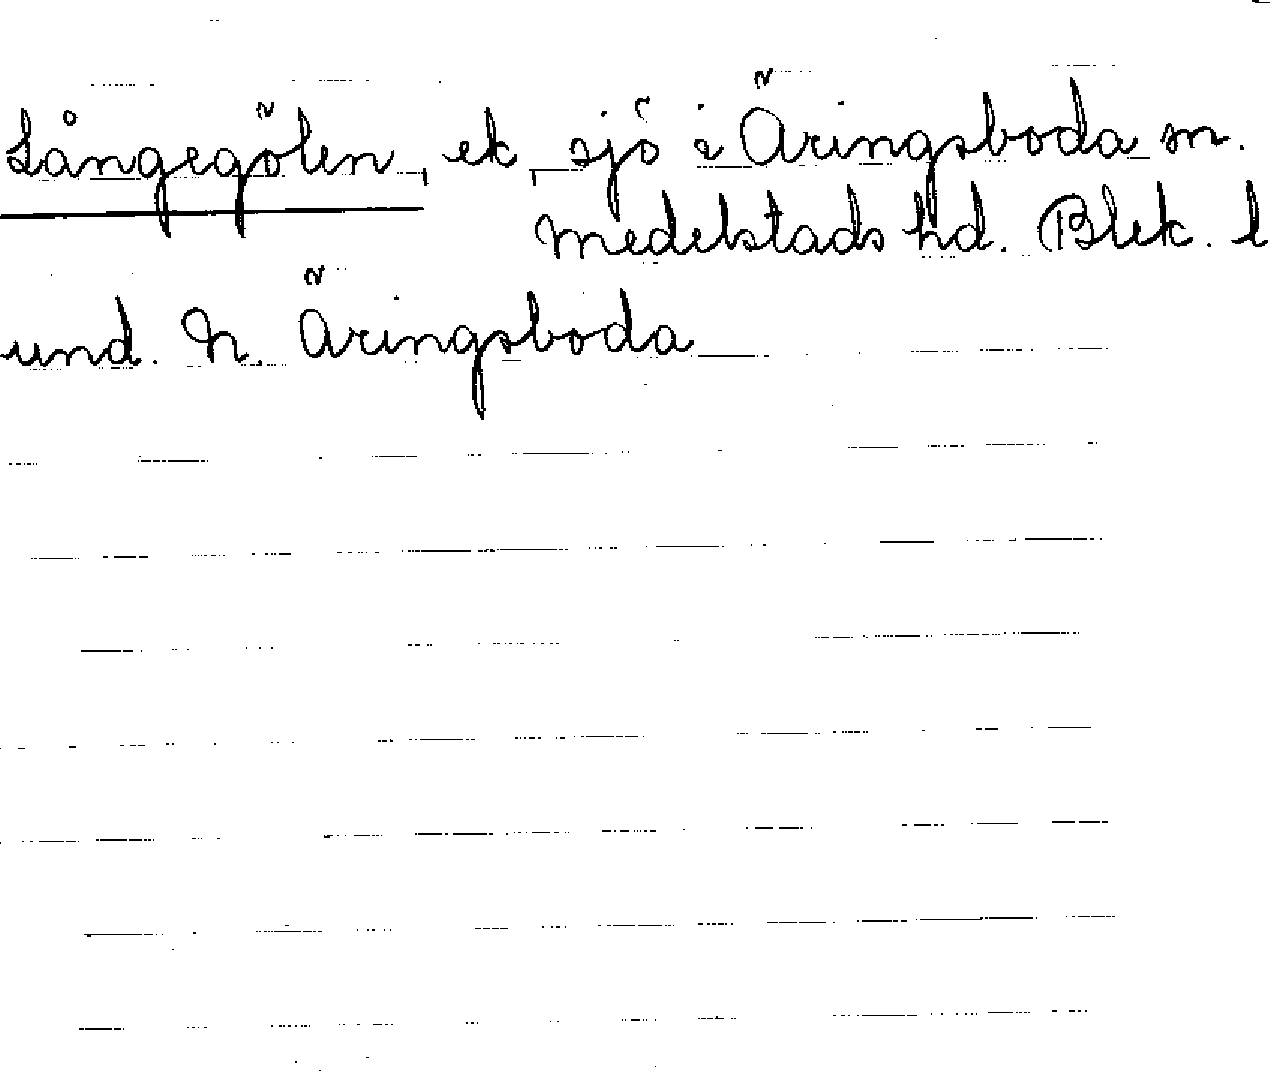 Långegölen, ek, sjö i Äringsboda sn.
Medelstads hd. Blek. l
und. N. Äringsboda